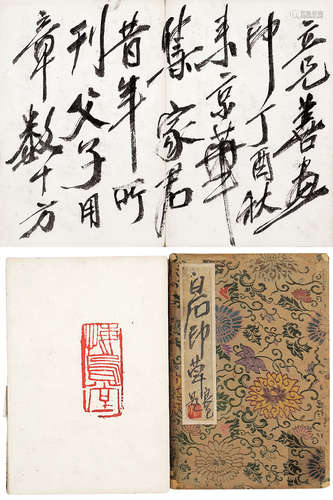 兄善畫
印丁酉秋
来京華
集家君
昔年所
刊父子用
章數十方
白石印草